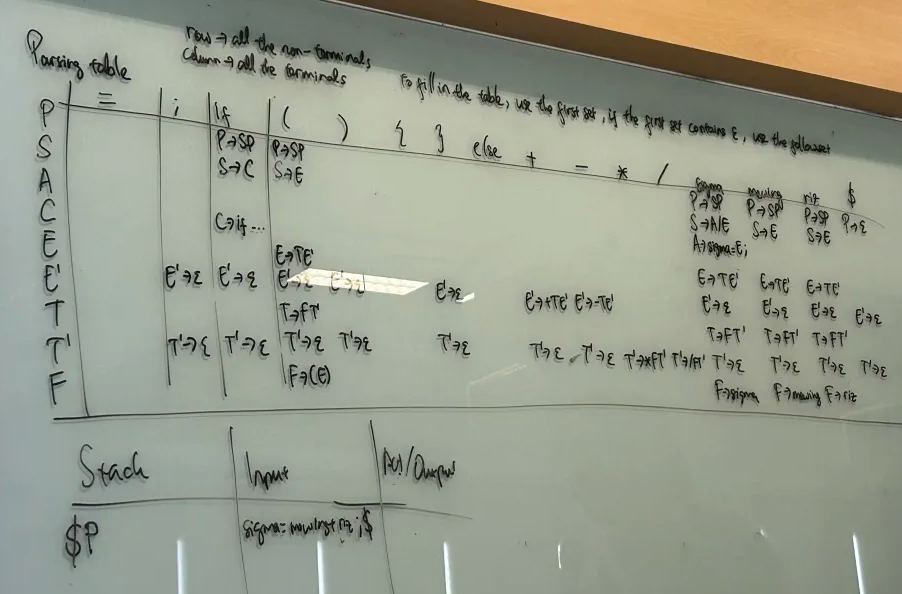 Parsing table
row → all the non-terminals
column → all the terminals
to fill in the table, use the first set, if the first set contains ε, use the followset
= ; if ( ) { } else + = * / sigma mewing riz $
P P→SP P→SP P→SP P→SP P→SP P→ε
S S→C S→E S→A/E S→E S→E
A A→sigma=E;
C C→if...
E E→TE' E→TE' E→TE' E→TE'
E' E'→ε E'→ε E'→ε E'→ε E'→ε E'→+TE' E'→-TE' E'→ε E'→ε E'→ε E'→ε
T T→FT' T→FT' T→FT' T→FT'
T' T'→ε T'→ε T'→ε T'→ε T'→ε T'→ε T'→ε T'→*FT' T'→/FT' T'→ε T'→ε T'→ε T'→ε
F F→(E) F→sigma F→mewing F→riz
Stack Input Act/Output
$P sigma=mewing+riz;$